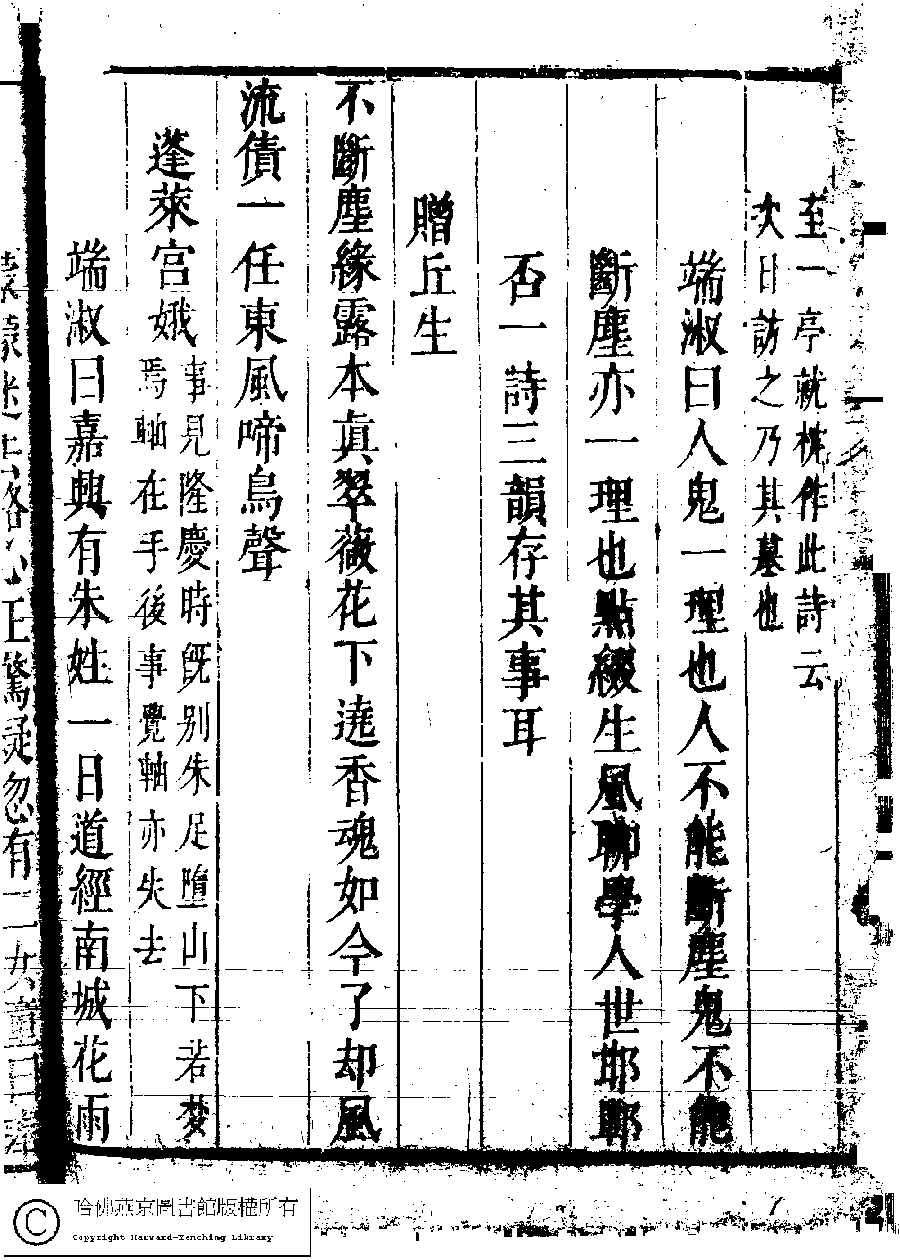 至一亭就枕作此詩云
次日訪之乃其墓也
端淑曰人鬼一理也人不能斷塵鬼不能
斷塵亦一理也點綴生風聊學人世耶鄲
否一詩三韻存其事耳
贈丘生
不斷塵緣露本真翠薇花下遶香魂如今了却風
流債一任東風啼鳥聲
蓬萊宮娥
事見隆慶時旣别朱足墮山下若梦
焉軸在手後事覺軸亦失去
端淑曰嘉興有朱姓一日道經南城花雨
濛迷 路心正驚疑忽有二女童曰
哈佛燕京圖書館版權所有
Copyright Harvard-Yenching Library